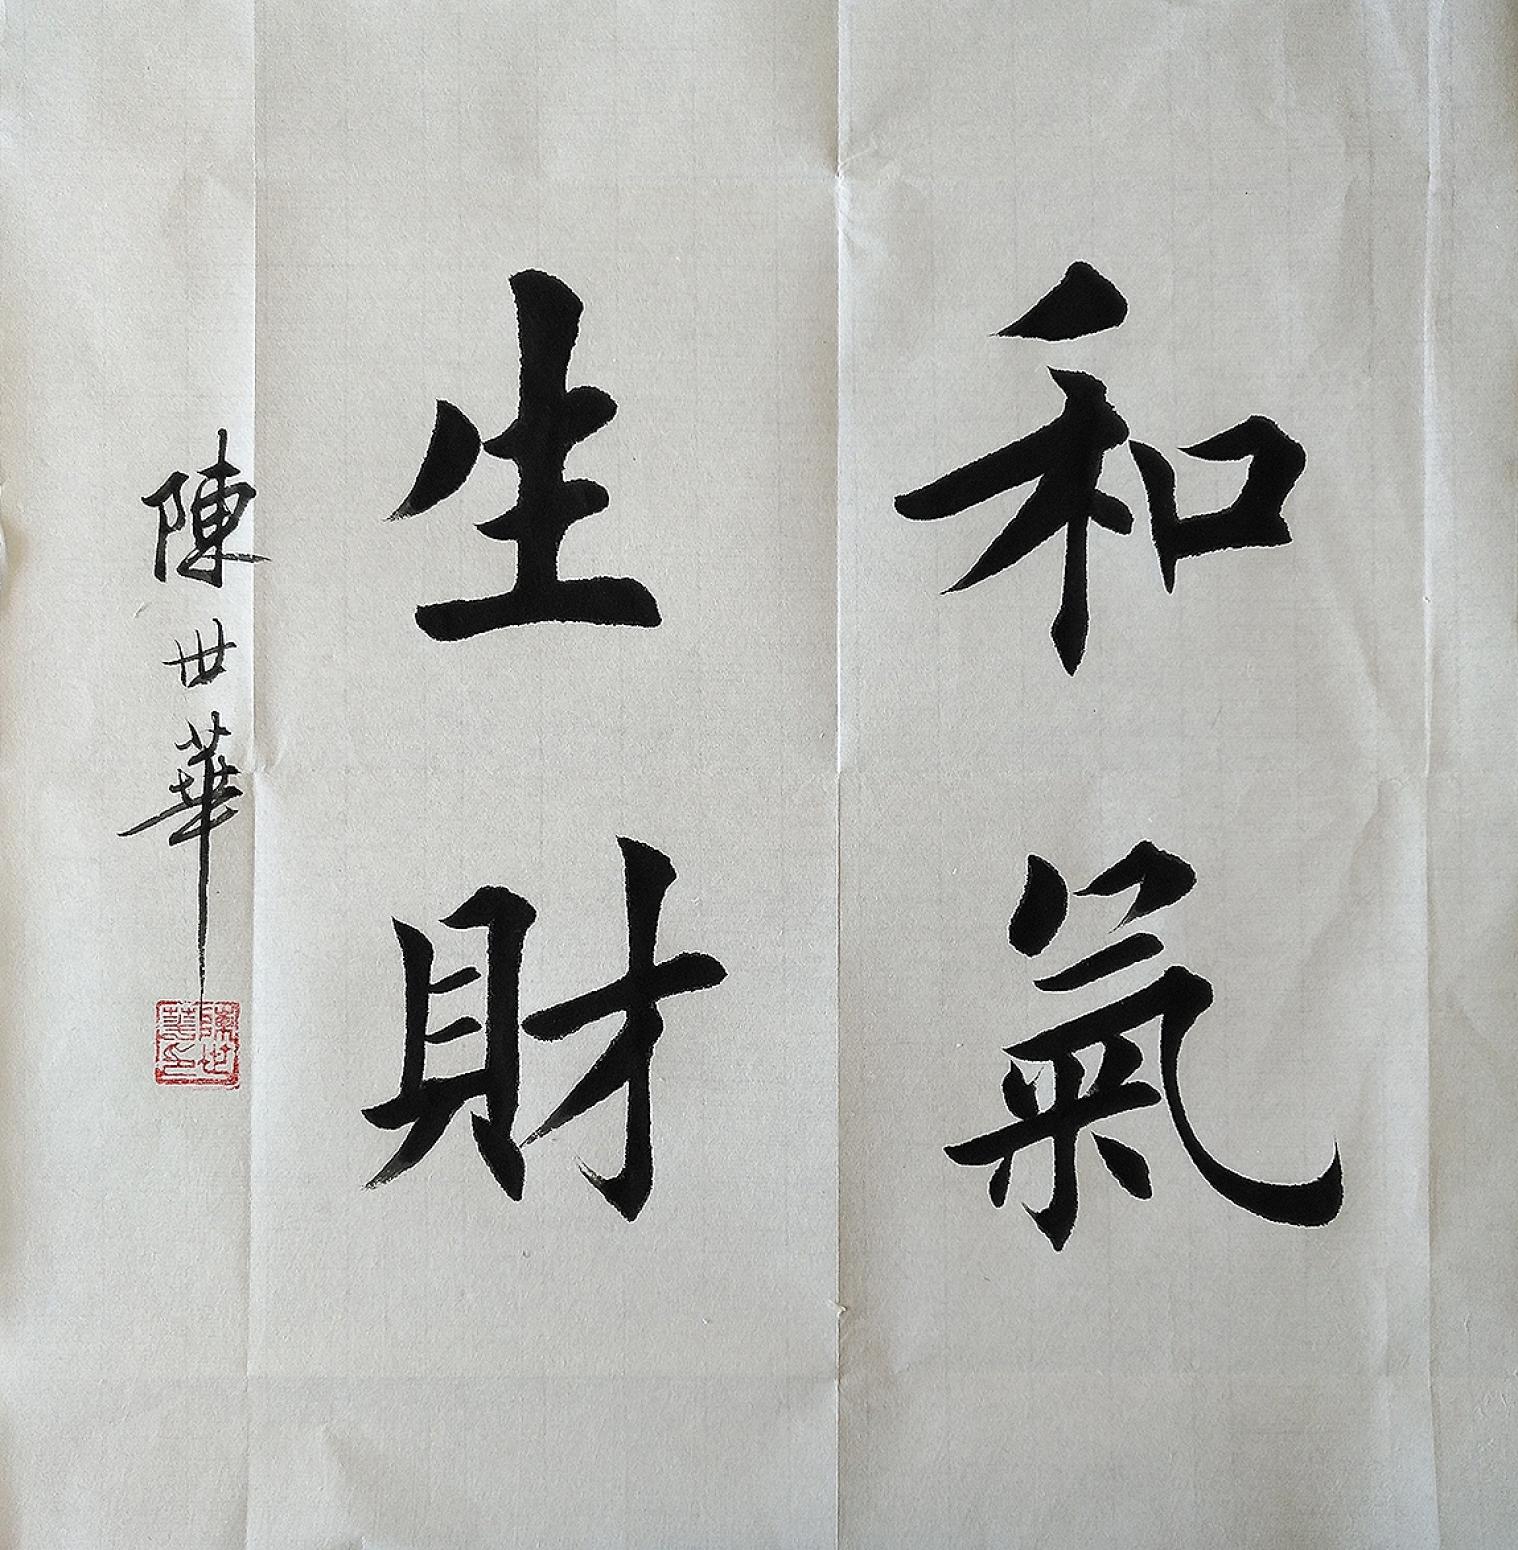 和氣
生財
陳世華
陳世華印